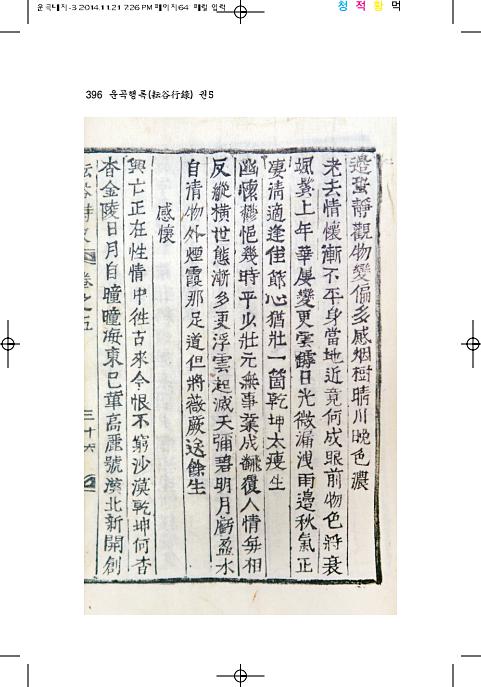 운곡내지-3 2014.11.21 7:26 PM 페이지64 매일 입력
청 적 황 먹
396 운곡행록(耘谷行錄) 권5
邉蛩靜觀物變偏多感烟樹晴川晩色濃
老去情懷漸不平身當地近竟何成眼前物色將衰
颯鬂上年華屢變更雲罅日光微漏洩雨邉秋氣正
凄清適逢佳節心猶壯一箇乾坤太瘦生
幽懷欎悒幾時平少壯元無事業成飜覆人情每相
反縱橫世態漸多更浮雲起滅天彌碧明月虧盈水
自清物外煙霞那足道但將薇蕨送餘生
感懷
興亡正在性情中徃古來今恨不窮沙漠乾坤何杳
杳金陵日月自曈曈海東已革高麗號漠北新開創
耘谷詩史 卷之五 三十六